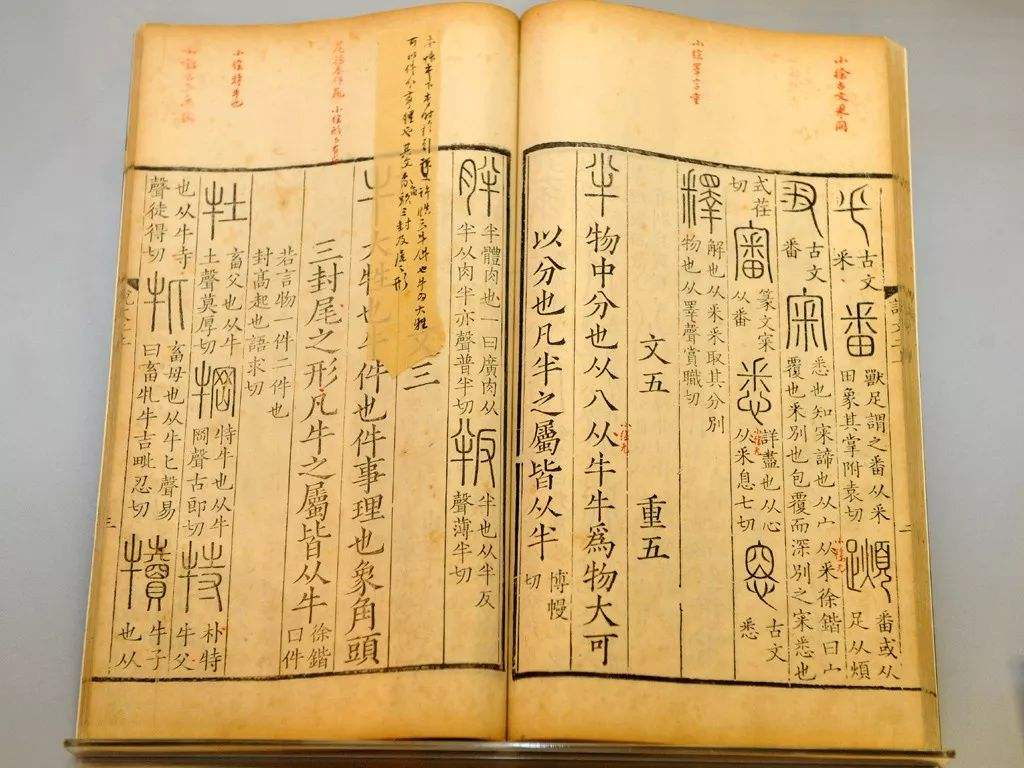 古文釆 番 獸足謂之番从釆田象其掌附袁切 𨆌 番或从足从煩
古文番 宷 悉也知宷諦也从宀从釆徐鍇曰宀覆也釆別也包覆而深別之宷悉也
式荏切 審 篆文宷从番 悉 詳盡也从心从釆息七切 古文悉
釋 解也从釆釆取其分別物也从睪聲賞職切
文五 重五
半 物中分也从八从牛牛爲物大可
以分也凡半之屬皆从半 博幔切
胖 半體肉也一曰廣肉从半从肉半亦聲普半切 叛 半也从半反聲薄半切
文三
牛 大牲也牛件也件事理也象角頭
三封尾之形凡牛之屬皆从牛 徐鍇曰件
若言物一件二件也封高起也語求切
牡 畜父也从牛土聲莫厚切 犅 特牛也从牛岡聲古郎切 特 朴特牛父
也从牛寺聲徒得切 牝 畜母也从牛匕聲易曰畜牝牛吉毗忍切 犢 牛子也从
小徐古文釆同
小徐特牛也